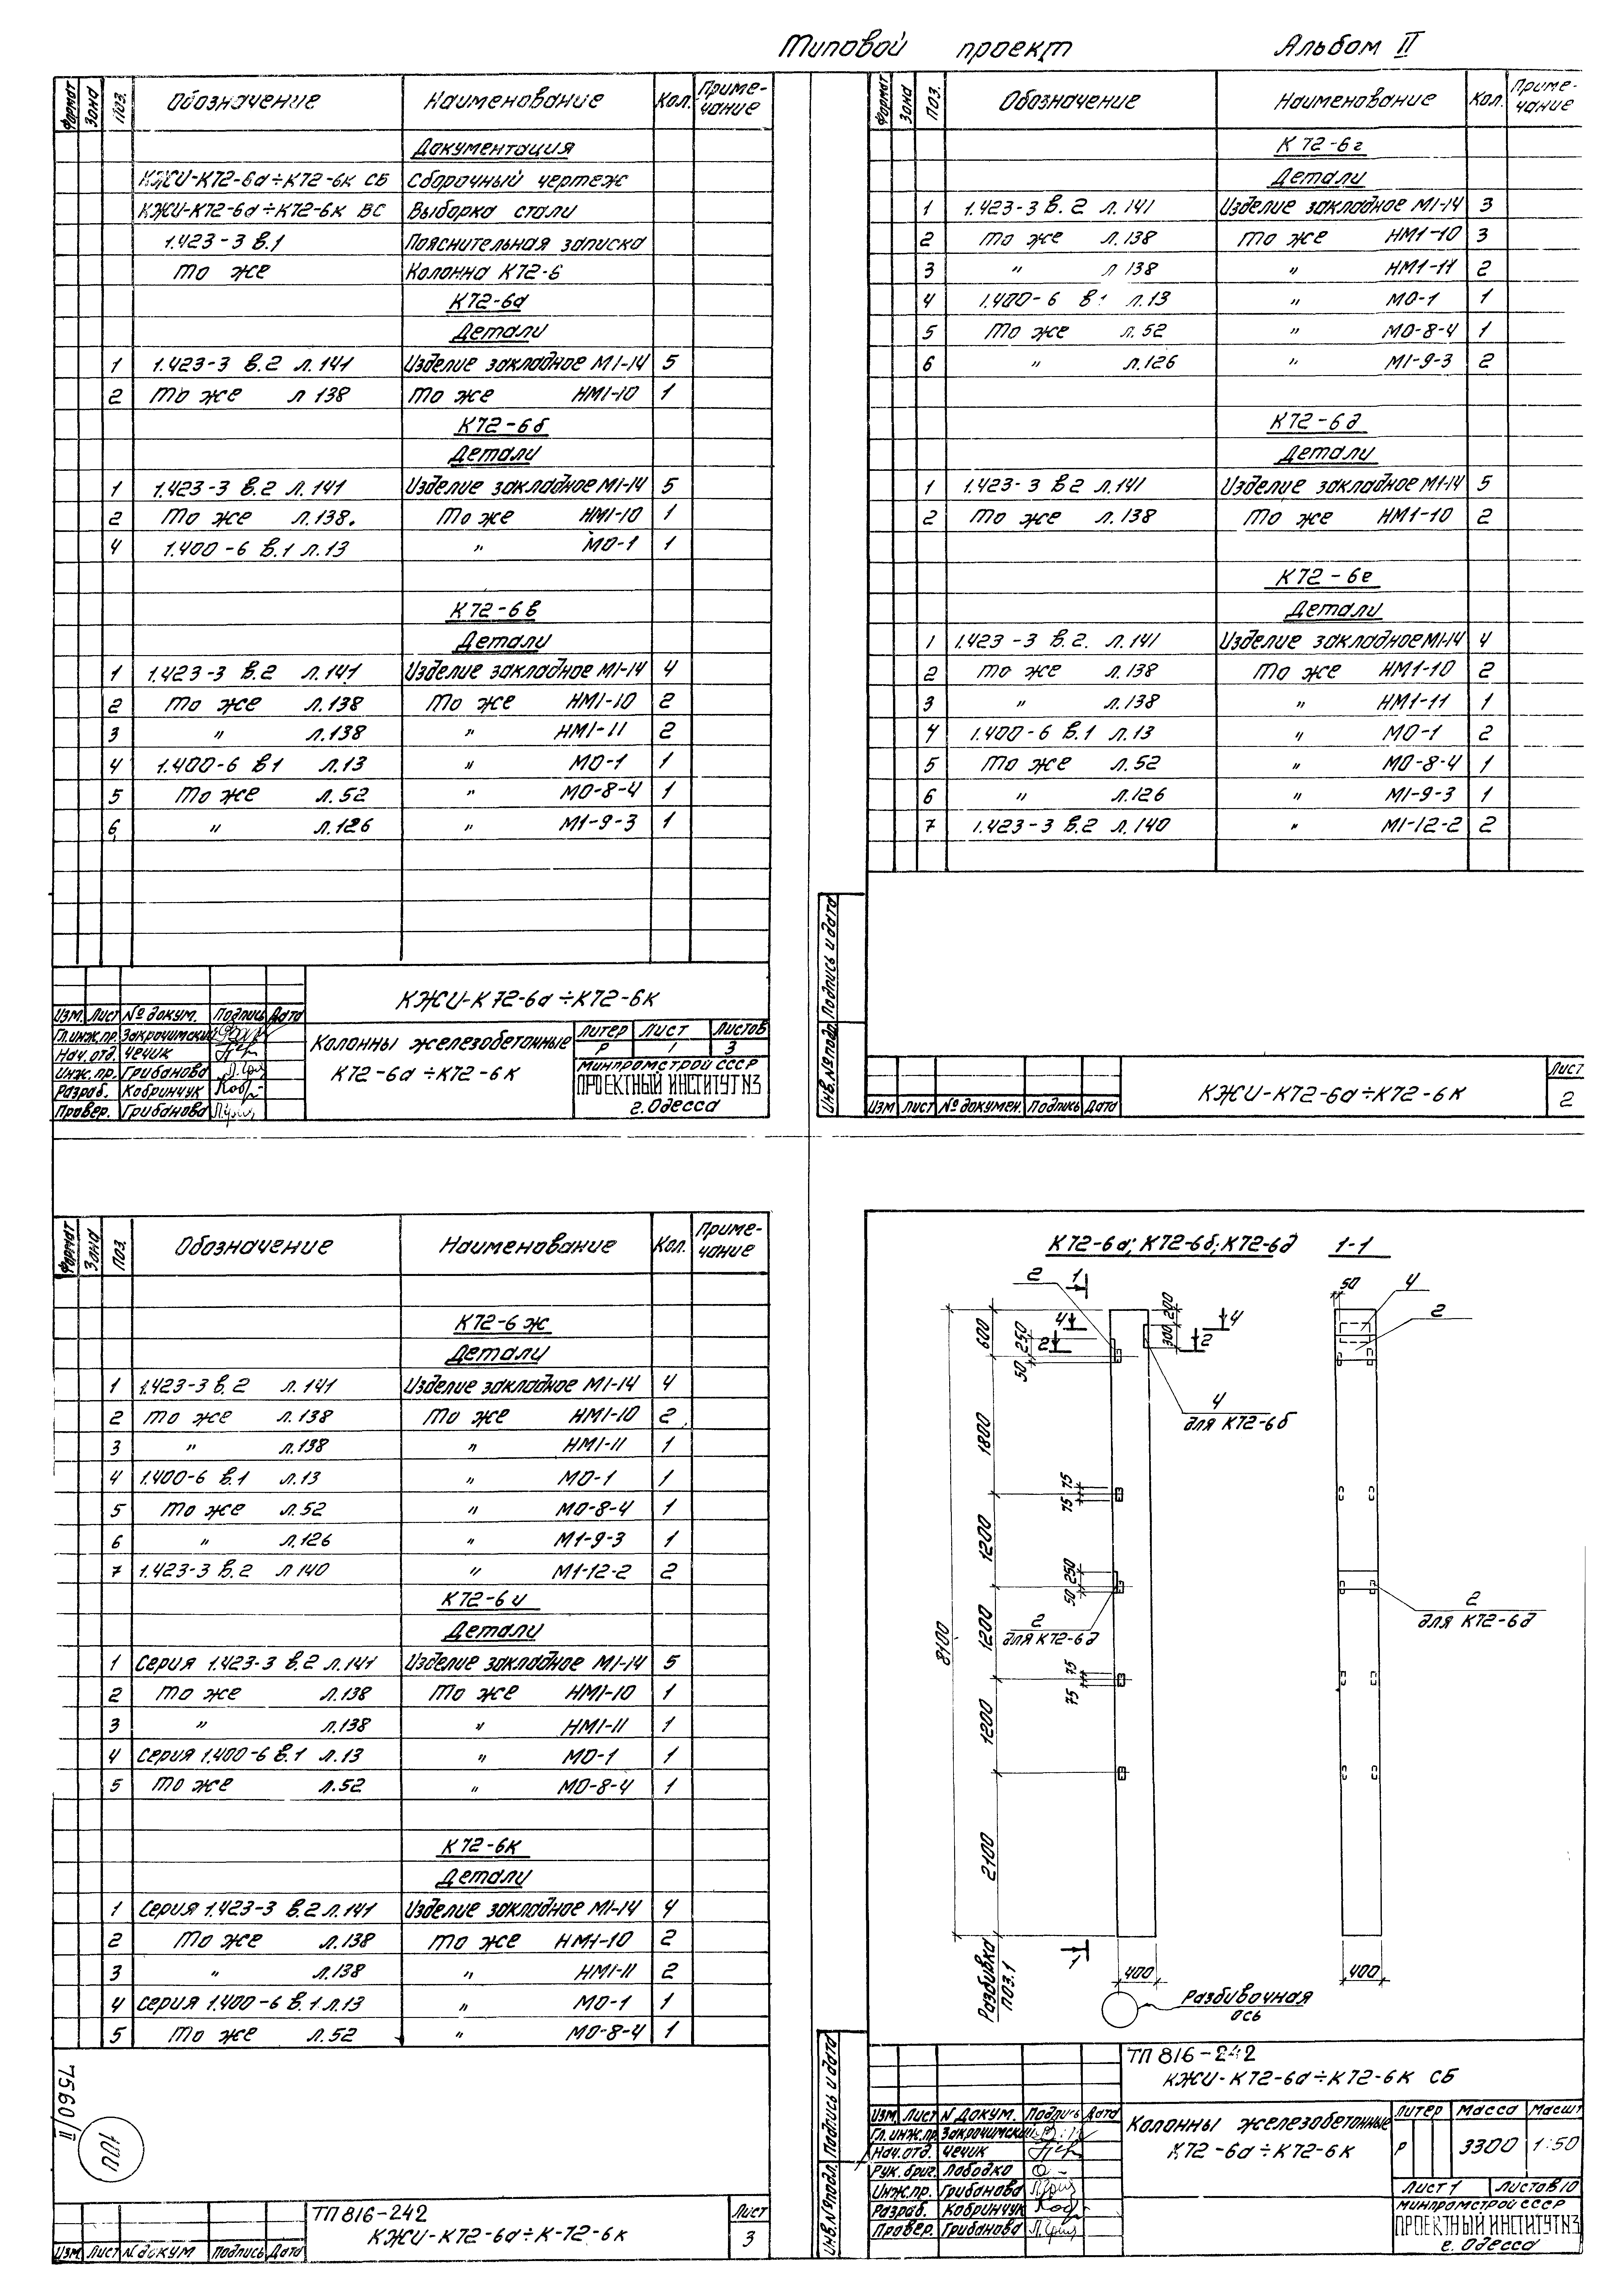 Типовой проект Альбом II
Формат Зона Поз. Обозначение Наименование Кол. Приме-
чание
Документация
КЖИ-К72-6а÷К72-6к СБ Сборочный чертеж
КЖИ-К72-6а÷К72-6к ВС Выборка стали
1.423-3 в.1 Пояснительная записка
То же Колонна К72-6
К72-6а
Детали
1 1.423-3 в.2 л.141 Изделие закладное М1-14 5
2 То же л 138 То же НМ1-10 1
К72-6б
Детали
1 1.423-3 в.2 л.141 Изделие закладное М1-14 5
2 То же л.138. То же НМ1-10 1
4 1.400-6 в.1 л.13 " МО-1 1
К72-6в
Детали
1 1.423-3 в.2 л.141 Изделие закладное М1-14 4
2 То же л.138 То же НМ1-10 2
3 " л.138 " НМ1-11 2
4 1.400-6 в1 л.13 " МО-1 1
5 То же л.52 " МО-8-4 1
6 " л.126 " М1-9-3 1
КЖИ-К72-6а÷К72-6к
Изм. Лист № докум. Подпись Дата
Гл.инж.пр. Закрочимский
Нач.отд. Чечик
Инж.пр. Грибанова
Разраб. Кобринчук
Провер. Грибанова
Колонны железобетонные
К72-6а÷К72-6к
Литер Лист Листов
Р 1 3
Минпромстрой СССР
ПРОЕКТНЫЙ ИНСТИТУТ N3
г.Одесса
Формат Зона Поз. Обозначение Наименование Кол. Приме-
чание
К72-6г
Детали
1 1.423-3 в.2 л.141 Изделие закладное М1-14 3
2 То же л.138 То же НМ1-10 3
3 " л 138 " НМ1-11 2
4 1.400-6 в1 л.13 " МО-1 1
5 То же л.52 " МО-8-4 1
6 " л.126 " М1-9-3 2
К72-6д
Детали
1 1.423-3 в2 л.141 Изделие закладное М1-14 5
2 То же л.138 То же НМ1-10 2
К72-6е
Детали
1 1.423-3 в.2. л.141 Изделие закладное М1-14 4
2 То же л.138 То же НМ1-10 2
3 " л.138 " НМ1-11 1
4 1.400-6 в.1 л.13 " МО-1 2
5 То же л.52 " МО-8-4 1
6 " л.126 " М1-9-3 1
7 1.423-3 в.2 л.140 " М1-12-2 2
Инв.№ подл. Подпись и дата
Изм Лист № докумен. Подпись Дата
КЖИ-К72-6а÷К72-6к
Лист
2
Формат Зона Поз. Обозначение Наименование Кол. Приме-
чание
К72-6ж
Детали
1 1.423-3 в.2 л.141 Изделие закладное М1-14 4
2 То же л.138 То же НМ1-10 2
3 " л.138 " НМ1-11 1
4 1.400-6 в.1 л.13 " МО-1 1
5 То же л.52 " МО-8-4 1
6 " л.126 " М1-9-3 1
7 1.423-3 в.2 л 140 " М1-12-2 2
К72-6и
Детали
1 Серия 1.423-3 в.2 л.141 Изделие закладное М1-14 5
2 То же л.138 То же НМ1-10 1
3 " л.138 " НМ1-11 1
4 Серия 1.400-6 в.1 л.13 " МО-1 1
5 То же л.52 " МО-8-4 1
К72-6к
Детали
1 Серия 1.423-3 в.2 л.141 Изделие закладное М1-14 4
2 То же л.138 То же НМ1-10 2
3 " л.138 " НМ1-11 2
4 Серия 1.400-6 в.1 л.13 " МО-1 1
5 То же л.52 " МО-8-4 1
7560/II
Изм. Лист N докум Подпись Дата
ТП 816-242
КЖИ-К72-6а÷К-72-6к
Лист
3
К72-6а; К72-6б; К72-6д 1-1
2 1 50 4
2
4 4
2 2
200
300
600
250
50
4
для К72-6б
1800
75
75
1200
250
50
2
для К72-6д
2
для К72-6д
1200
8100
75
75
1200
2100
Разбивка
поз.1
1
400
400
Разбивочная
ось
Инв.№ подл. Подпись и дата
ТП 816-242
КЖИ-К72-6а÷К72-6к СБ
Изм. Лист N докум. Подпись Дата
Гл.инж.пр. Закрочимский
Нач.отд. Чечик
Рук.бриг. Лободко
Инж.пр. Грибанова
Разраб. Кобринчук
Провер. Грибанова
Колонны железобетонные
К72-6а÷К72-6к
Литер Масса Масшт
Р 3300 1:50
Лист 1 Листов 10
Минпромстрой СССР
ПРОЕКТНЫЙ ИНСТИТУТ N3
г. Одесса